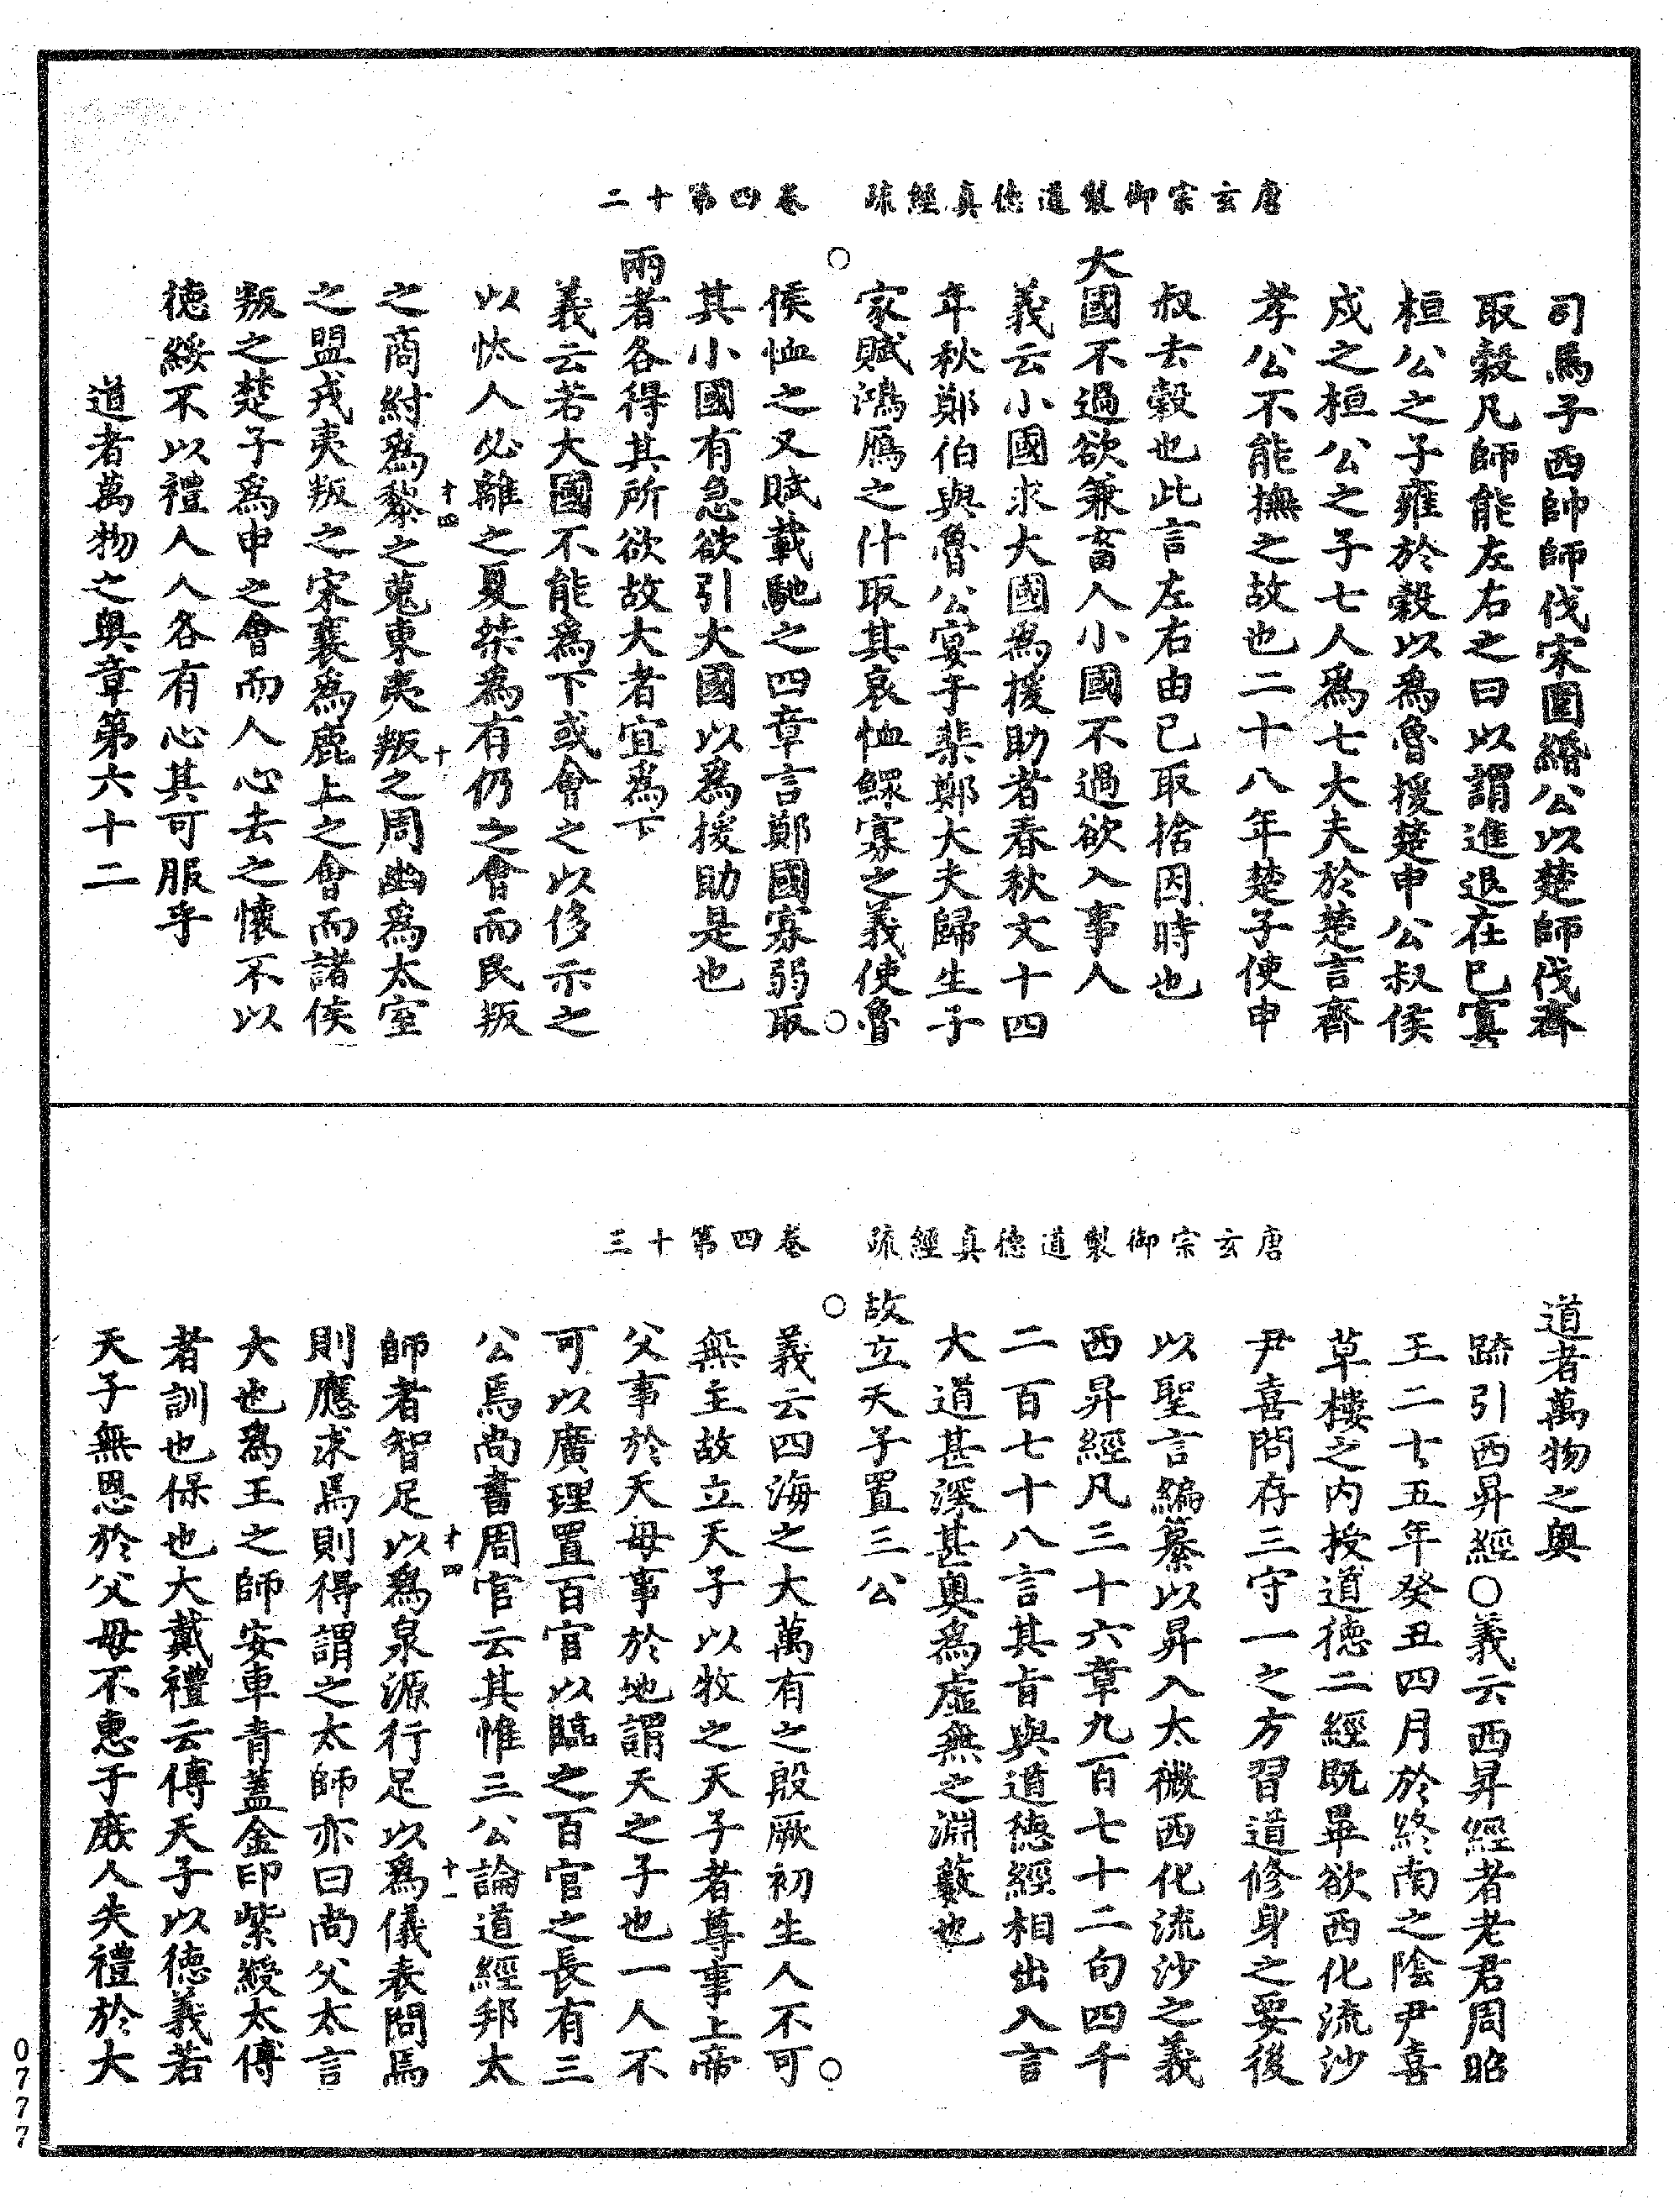 唐玄宗御製道德真經疏　卷四第十二
司馬子西帥師伐宋圍緡公以楚師伐齊
取穀凡師能左右之曰以謂進退在已寘
桓公之子雍於穀以爲魯援楚申公叔侯
戍之桓公之子七人爲七大夫於楚言齊
孝公不能撫之故也二十八年楚子使申
叔去穀也此言左右由已取捨因時也
大國不過欲兼畜人小國不過欲入事人
義云小國求大國爲援助者春秋文十四
年秋鄭伯與魯公宴于棐鄭大夫歸生子
家賦鴻鴈之什取其哀恤鰥寡之義使魯
侯恤之又賦載馳之四章言鄭國寡弱取
其小國有急欲引大國以爲援助是也
兩者各得其所欲故大者宜爲下
義云若大國不能爲下或會之以侈示之
以忲人必離之夏桀爲有仍之會而民叛
之商紂爲黎之蒐東夷叛之周幽爲太室
十四
十
之盟戎夷叛之宋襄爲鹿上之會而諸侯
叛之楚子爲申之會而人心去之懷不以
德綏不以禮人人各有心其可服乎
道者萬物之奥章第六十二
唐玄宗御製道德真經疏　卷四第十三
道者萬物之奥
䟽引西昇經○義云西昇經者老君周昭
王二十五年癸丑四月於終南之陰尹喜
草樓之内授道德二經既畢欲西化流沙
尹喜問存三守一之方習道修身之要後
以聖言編纂以昇入太微西化流沙之義
西昇經凡三十六章九百七十二句四千
二百七十八言其旨與道德經相出入言
大道甚深甚奥爲虛無之淵藪也
故立天子置三公
義云四海之大萬有之殷厥初生人不可
無主故立天子以牧之天子者尊事上帝
父事於天母事於地謂天之子也一人不
可以廣理置百官以臨之百官之長有三
公焉尚書周官云其惟三公論道經邦太
師者智足以爲泉源行足以爲儀表問焉
十四
十一
則應求焉則得謂之太師亦曰尚父太言
大也爲王之師安車青蓋金印紫綬太傅
者訓也保也大戴禮云傅天子以德義若
天子無恩於父母不惠于庶人失禮於大
0777